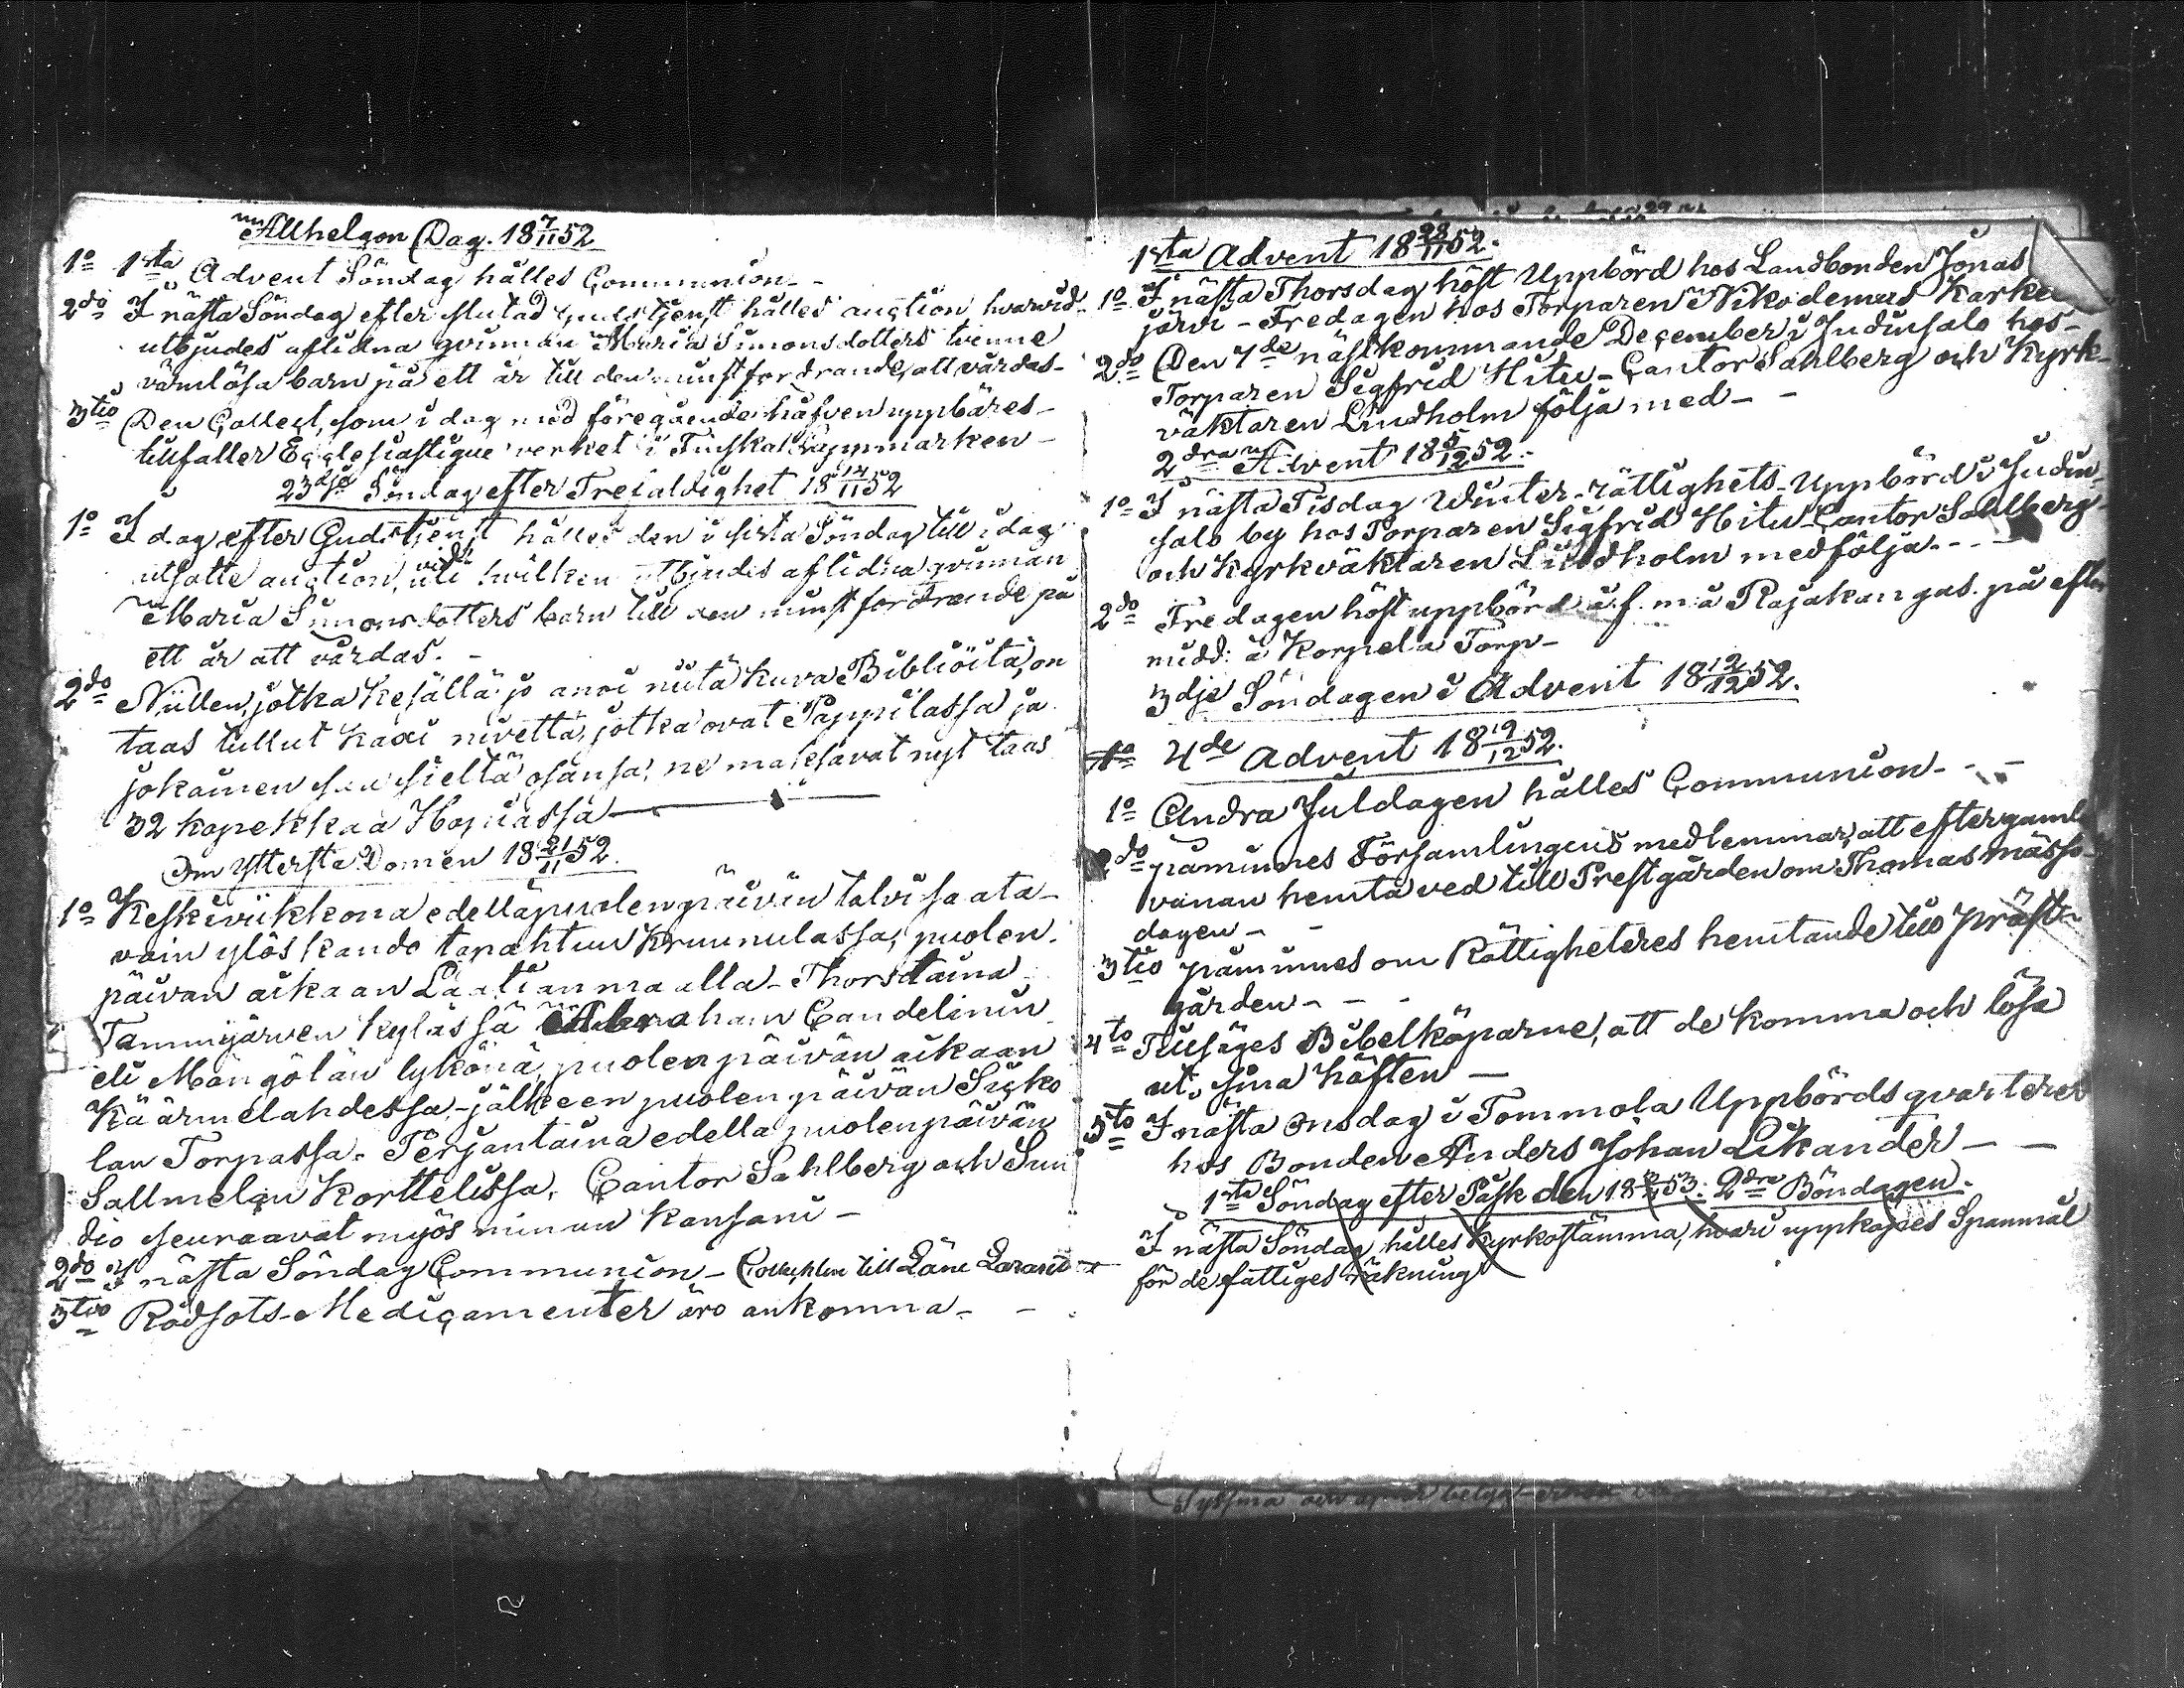 Allhelgon Dag. 18 7/11 52
1o 1sta Advent Söndag hålles Communion -
2do I nästa Söndag efter slutad gudstjenst hålles auction, hvarvid
utbjudes aflidna qvinnan Maria Simonsdotters tvenne
värnlösa barn på ett år till den minstfordrande, att vårdas -
3tio Den Collect, som i dag med föregående håfven uppbäres -
tillfaller Ecclesiastique verket i Finska Lappmarken -
23dje Söndag efter Trefaldighet 18 14/11 52
1o I dag efter Gudstjenst hålles den i sista Söndag till i dag
utsatte auction, uti vid hvilken utbjudes aflidna qvinnan
Maria Simonsdotters barn till den minstfordrande på
ett år att vårdas. -
2do Niillen, jotka kesällä jo anoi niitä kuva Bibliöitä, on
taas tullut kaxi nivettä, jotka ovat Pappilassa ja
jokainen saa sieltä osansa; ne maksavat nyt taas
32 kopekkaa Hopiassa
Om Yttersta Domen 18 21/11 52.
1o Keskiviikkona edelläpuolenpäivän talvisaata-
vain ylöskando tapahtuu Kruunulassa, puolen-
päivan aikaan Laalianmaalla - Thorstaina
Tammijärven kylässä Abraham Candelinin
eli Mängölän lykönä, puolenpäivän aikaan
Käärmelahdessa, - jälkeen puolenpäivän Sisko
lan Torpassa. Perjantaina edella puolenpäivän
Sallmelan Korttelissa, Cantor Sahlberg och Sun
dio seuraavat myös minun kansani -
2do I nästa Söndag Communion - Collekten till Läne Lazarett
3tio Rödsots-Medicamenter äro ankomna - -
1sta Advent 18 28/11 52.
1o I nästa Thorsdag höst Uppbörd hos Landbonden Jonas
järvi - Fredagen hos Torparen Nikodemus
2do Den 7de nästkommande December i Judinsalo hos -
Torparen Sigfrid Hitu - Cantor Sahlberg och Kyrk-
väktaren Lindholm följa med - -
2dra Advent 18 5/12 52.
1o I nästa Tisdag Winter-rättighets-Uppbörd i Judin-
salo by hos Torparen Sigfrid Hitu - Cantor Sahlberg
och Kyrkväktaren Lindholm medfölja - - -
2do Fredagen höst uppbörd å f.m. å Rajakangas. på efter
midd: å Korpela Torp -
3dje Söndagen i Advent 18 12/12 52.
1o 4de Advent 18 19/12 52.
1o Andra Juldagen hålles Communion - - -
2do påminnes Församlingens medlemmar, att efter gamla
vanan hemta ved till Prestgården om Thomasmässo-
dagen - -
3tio påminnes om Rättigheteres hemtande till präst-
gården - - -
4to Tillsäges Bibelköparne, att de komma och lösa
ut sina häften -
5to I nästa Onsdag i Tommola Uppbördsqvarteret
hos Bonden Anders Johan Likander - -
1sta Söndag efter Påsk den 18 53. 2dra Böndagen.
I nästa Söndag hålles Kyrkostämma, hvari uppköpes Spanmål
för de fattiges räkning